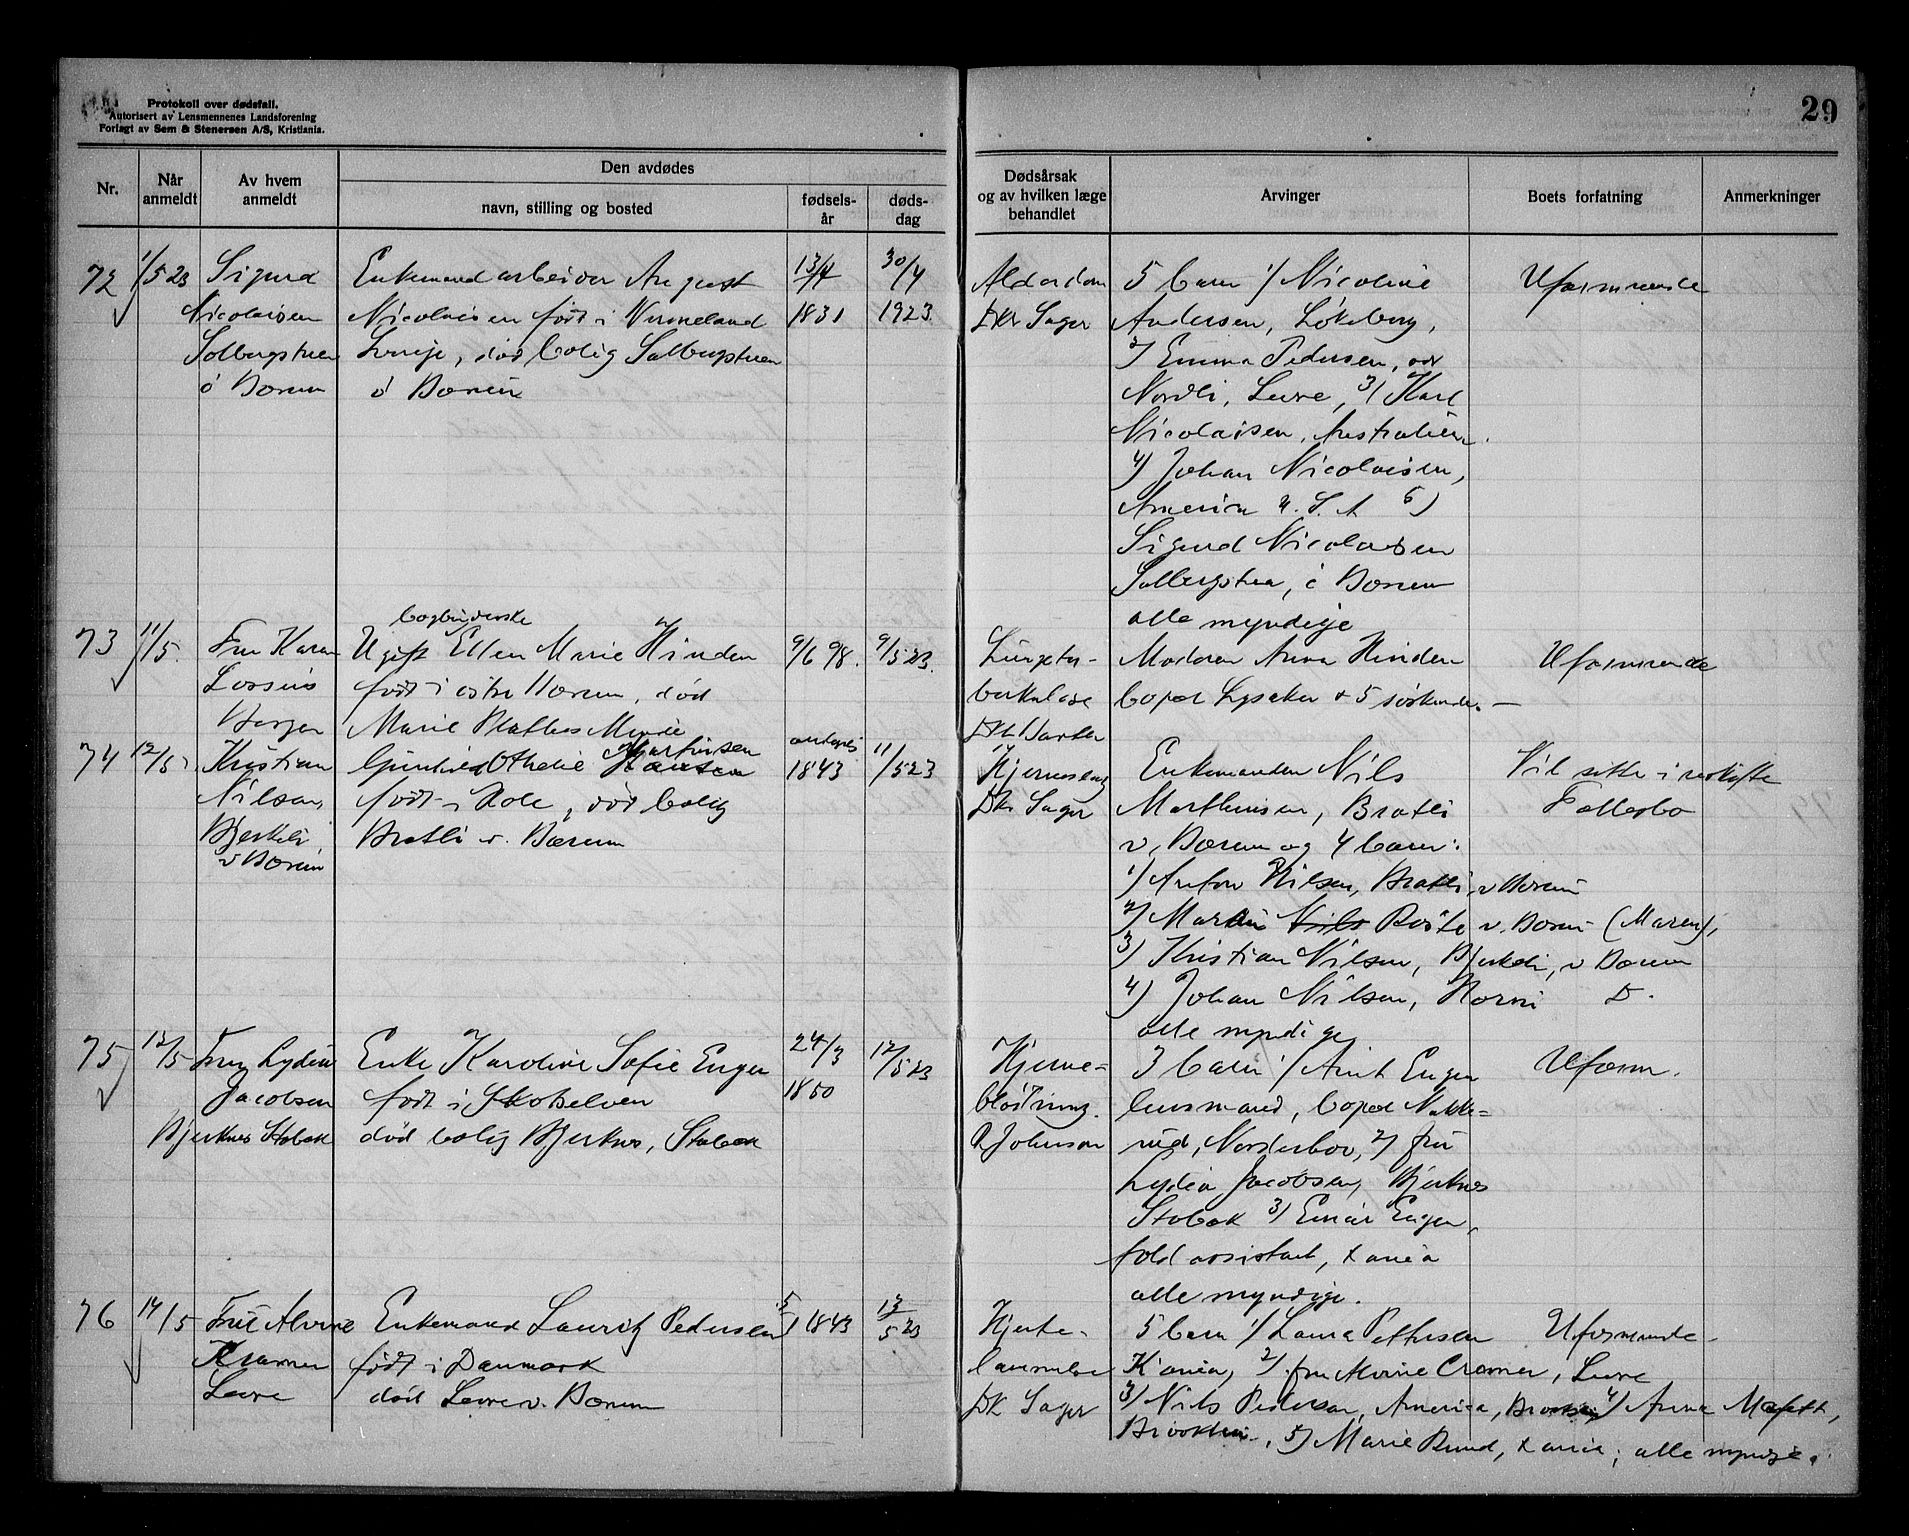 29
Protokoll over dødsfall.
Autorisert av Lensmennenes Landsforening
Forlagt av Sem & Stenersen A/S, Kristiania.
Nr.
Når anmeldt
Av hvem anmeldt
Den avdødes
navn, stilling og bosted
fødsels-år
døds-dag
Dødsårsak og av hvilken læge behandlet
Arvinger
Boets forfatning
Anmerkninger
72 1/5 23 Sigurd Enkemand arbeider August 13/4 30/4
Nicolaisen Nicolaisen født i Vermeland 1831 1923
Solbergstuen Sverige, død bolig Solbergstuen
ø Bærum ø Bærum
Alderdom 5 barn 1/ Nicoline Uformuende
Dr Sager Andersen, Løkeberg,
2/ Emma Pedersen,
Nordli, Levre, 3/ Karl
Nicolaisen, Australien.
4) Johan Nicolaisen,
America U. S. A 5)
Sigurd Nicolaisen
Solbergstua, ø Bærum
alle myndige
bogbinderske
73 11/5. Fru Karen Ugift Ellen Marie Hinden 9/6 98. 9/5 23.
født i østre Bærum, død
Marie Plathes Minde
Lungetu- Moderen Anna Hinden Uformuende
berkulose bopæl Lysaker + 5 søskende. —
74 12/5 Kristian Othelie Hansen Martinsen antagelig 1843 11/5 23
Nilsen, født i Hole, død bolig
Bjerkeli Bratli v. Bærum
v Bærum
Hjerneslag Enkemanden Nils Vil sitte i uskifte
Dr Sager Marthinsen, Bratli Fællesbo
v. Bærum og 4 barn:
1) Anton Nilsen, Bratli, v Bærum
2) Marthi Nils Røste v. Bærum (Maren),
3) Kristian Nilsen, Bjerkeli, v Bærum
4) Johan Nilsen, Horni D.
alle myndige
75 12/5 Fru Lydia Enke Karoline Sofie Enger 24/3 12/5 23
Jacobsen født i Skotselven 1850
Bjerknes Stabæk død bolig Bjerknes, Stabæk
Hjerne- 3 barn 1/ Arnt Enger Uform.
blødning. lensmand, bopæl Nakke-
Johnson rud, Norderhov, 2) fru
Lydia Jacobsen, Bjerknes
Stabæk 3) Einar Enger,
told assistent, Kania
alle myndige.
76 14/5 Fru Alvine Enkemand Lauritz Pedersen 5/1 1843 13/5 23
Kramer født i Danmark
Levre død Levre v. Bærum
Hjerte- 5 barn 1/ Laura Pettersen Uformuende
lammelse Kania, 2) fru Alvine Cramer, Levre
Dr Sager 3) Nils Pedersen, America, 4) Anna
Brooklin, 5) Marie Rund, Kania; alle myndige.